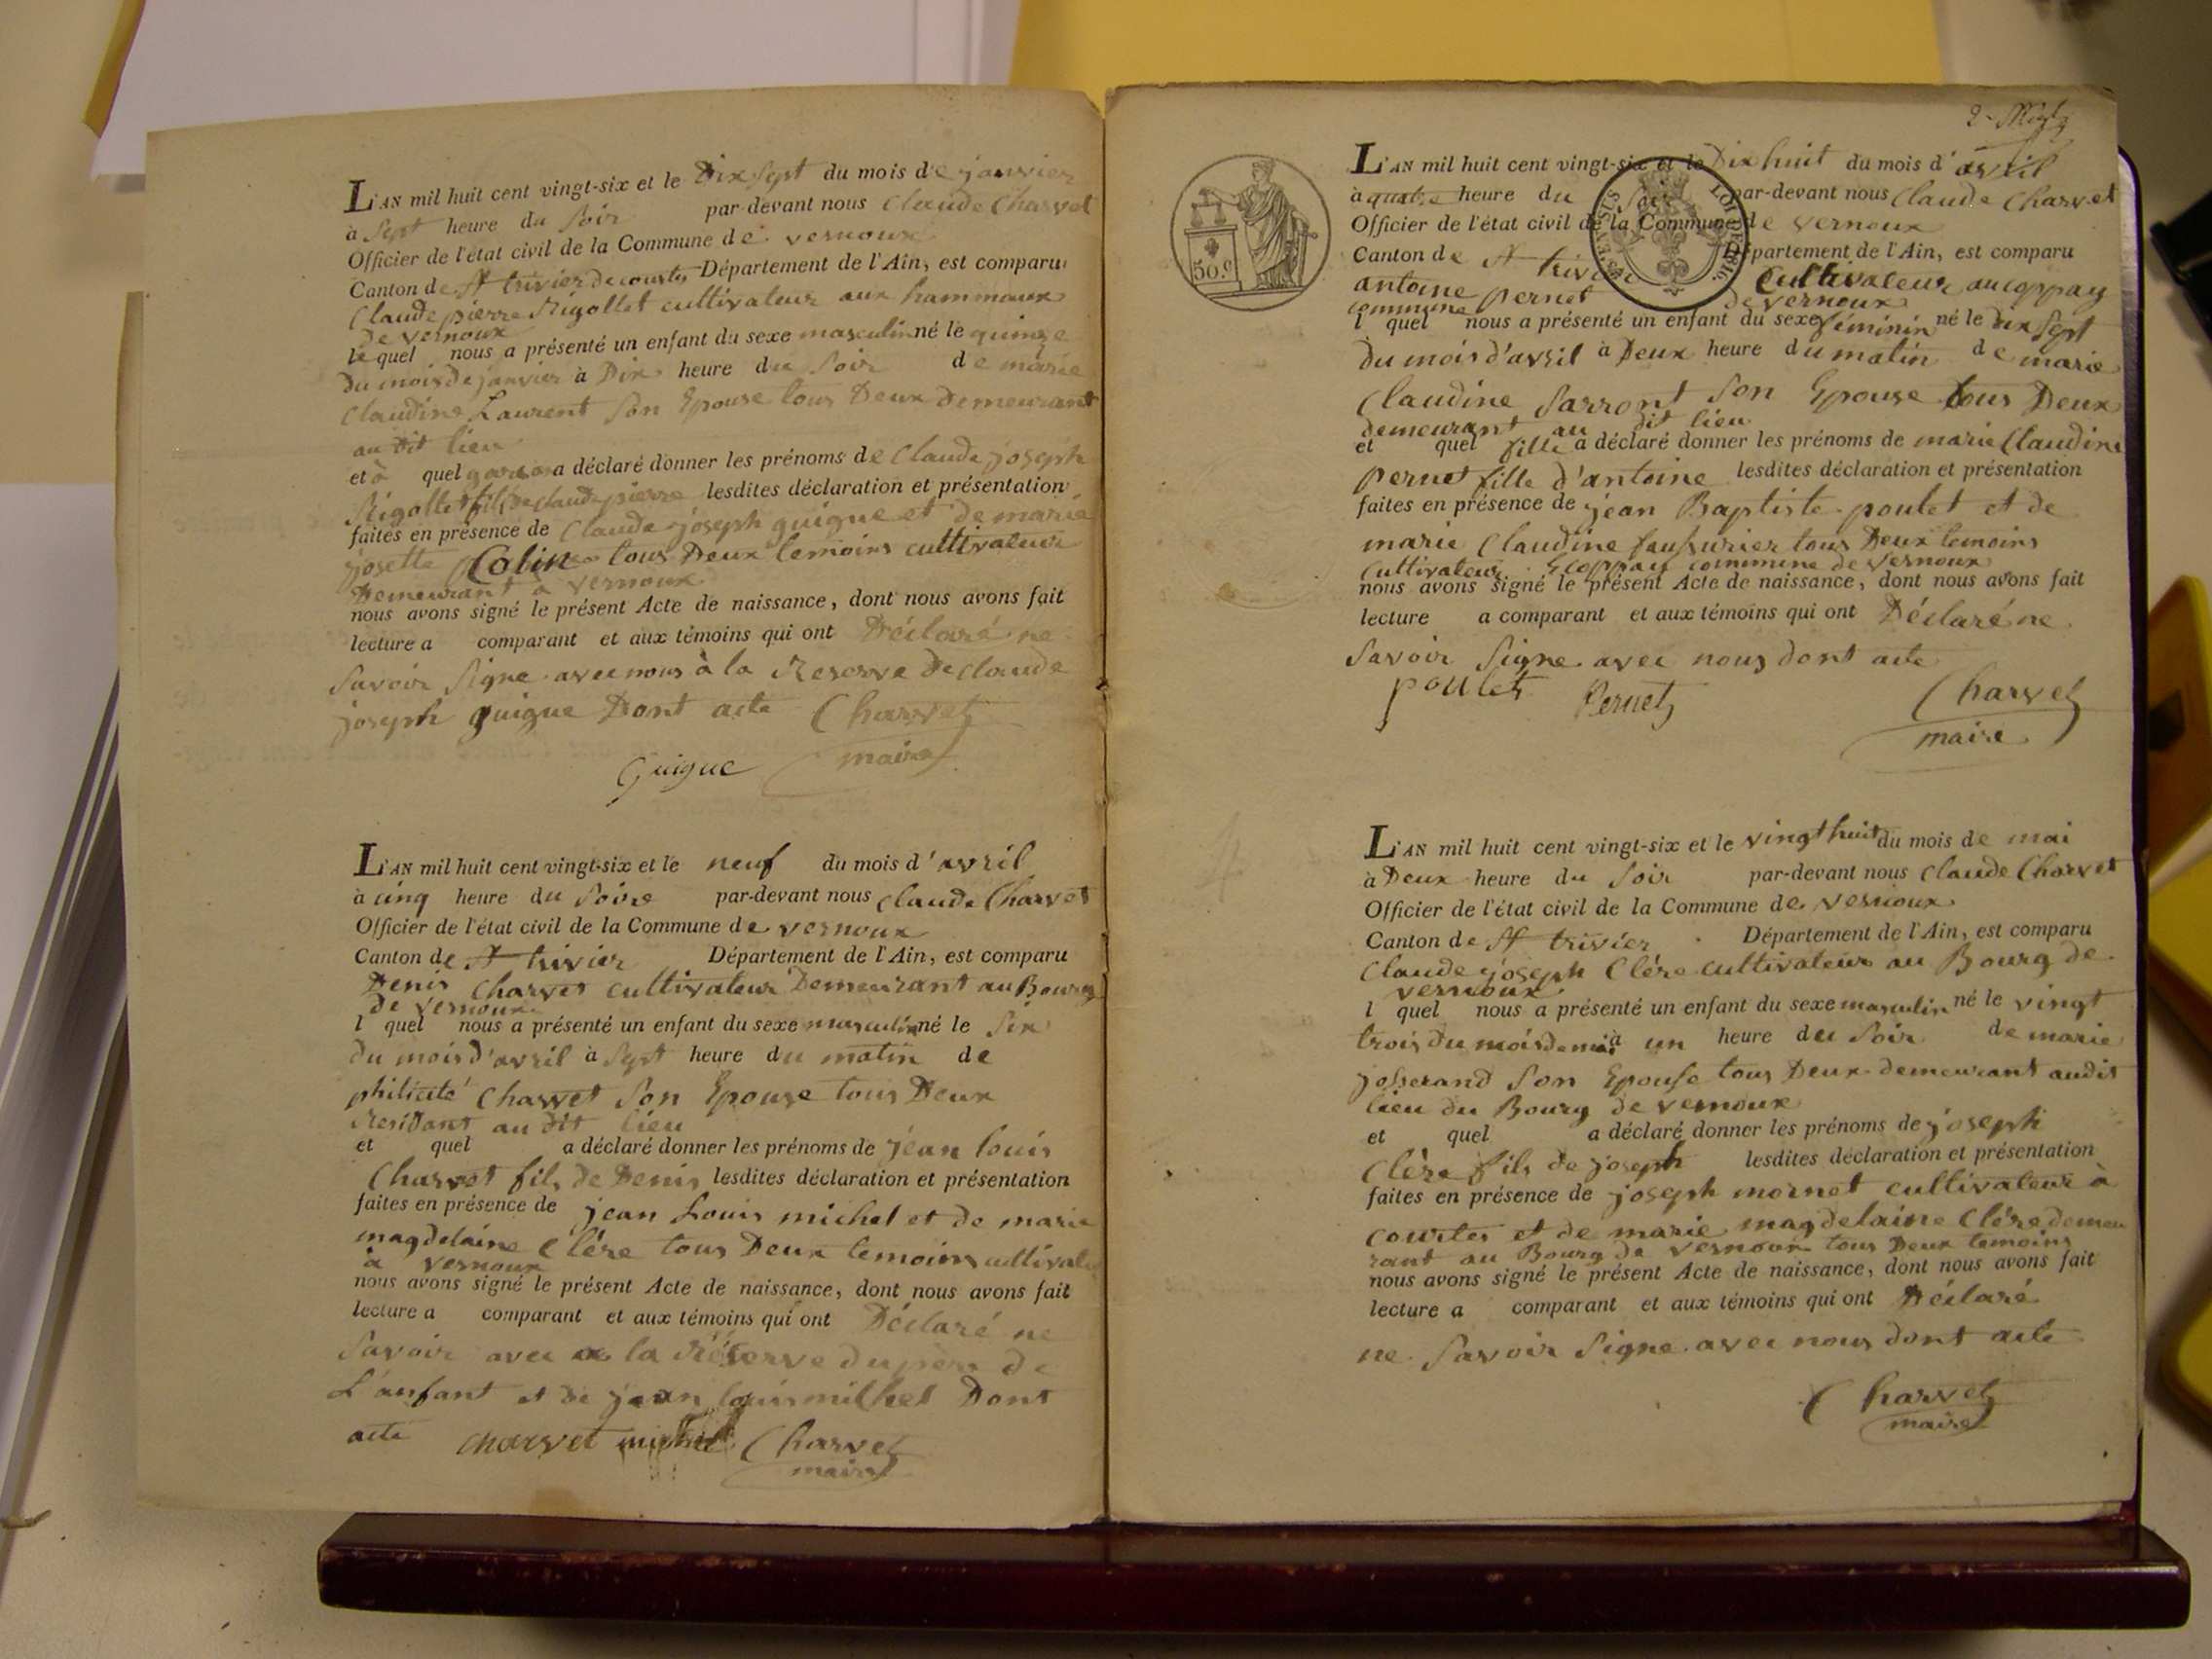 L'AN mil huit cent vingt-six et le Dix Sept du mois de janvier
à Sept heure du Soir par-devant nous Claude Charvet
Officier de l'état civil de la Commune de vernoux
Canton de St trivier de courtes Département de l'Ain, est comparu
Claude pierre Rigollet cultivateur aux hammaux
de vernoux
le quel nous a présenté un enfant du sexe masculin né le quinze
du mois de janvier à Dix heure du Soir de marie
Claudine Laurent Son Epouse tous Deux Demeurant
au dit lieu
et à quel garson a déclaré donner les prénoms de Claude joseph
Rigollet fils de claude pierre lesdites déclaration et présentation
faites en présence de Claude joseph guigue et de marie
josette Colin tous Deux temoins cultivateur
Demeurant à vernoux
nous avons signé le présent Acte de naissance, dont nous avons fait
lecture a comparant et aux témoins qui ont Déclaré ne
Savoir Signe avec nous à la Reserve de Claude
joseph guigue Dont acte Charvet
Guigue maire
L'AN mil huit cent vingt-six et le neuf du mois d'avril
à cinq heure du Soire par-devant nous Claude Charvet
Officier de l'état civil de la Commune de vernoux
Canton de St trivier Département de l'Ain, est comparu
Denis Charvet cultivateur Demeurant au Bourg
de vernoux
l quel nous a présenté un enfant du sexe masculin né le Six
du mois d'avril à Sept heure du matin de
philicité Charvet Son Epouse tous Deux
Residant au dit lieu
et quel a déclaré donner les prénoms de jean louis
Charvet fils de Denis lesdites déclaration et présentation
faites en présence de jean Louis michel et de marie
magdelaine Clére tous Deux temoins cultivat
à vernoux
nous avons signé le présent Acte de naissance, dont nous avons fait
lecture a comparant et aux témoins qui ont Déclaré ne
Savoir avec a la réserve du pere de
L'anfant et de jean louis milhel Dont
acte charvet michel Charvet
maire
2
L'AN mil huit cent vingt-six et le Dix huit du mois d'avril
à quatre heure du Soir par-devant nous Claude Charvet
Officier de l'état civil de la Commune de vernoux
Canton de St trivier Département de l'Ain, est comparu
antoine pernet Cultivateur au coppay
commune de vernoux
l quel nous a présenté un enfant du sexe féminin né le dix Sept
du mois d'avril à Deux heure du matin de marie
Claudine Sarront Son Epouse tous Deux
demeurant au dit lieu
et quel fille a déclaré donner les prénoms de marie Claudine
pernet fille d'antoine lesdites déclaration et présentation
faites en présence de jean Baptiste poulet et de
marie Claudine faussurier tous Deux temoins
Cultivateur coppay commune de vernoux
nous avons signé le présent Acte de naissance, dont nous avons fait
lecture a comparant et aux témoins qui ont Déclaré ne
Savoir Signe avec nous dont acte
poulet Pernet Charvet
maire
50.c
L'AN mil huit cent vingt-six et le vingt huit du mois de mai
à Deux heure du Soir par-devant nous Claude Charvet
Officier de l'état civil de la Commune de vernoux
Canton de St trivier Département de l'Ain, est comparu
Claude joseph Clére cultivateur au Bourg de
vernoux
l quel nous a présenté un enfant du sexe masculin né le vingt
trois du mois de mai à un heure du Soir de marie
josserand Son Epouse tous Deux demeurant audit
lieu du Bourg de vernoux
et quel a déclaré donner les prénoms de joseph
Clère fils de joseph lesdites déclaration et présentation
faites en présence de joseph mornet cultivateur à
courtes et de marie magdelaine Clére demeu
rant au Bourg de vernoux tous Deux temoins
nous avons signé le présent Acte de naissance, dont nous avons fait
lecture a comparant et aux témoins qui ont Déclaré
ne Savoir Signe avec nous dont acte
Charvet
maire